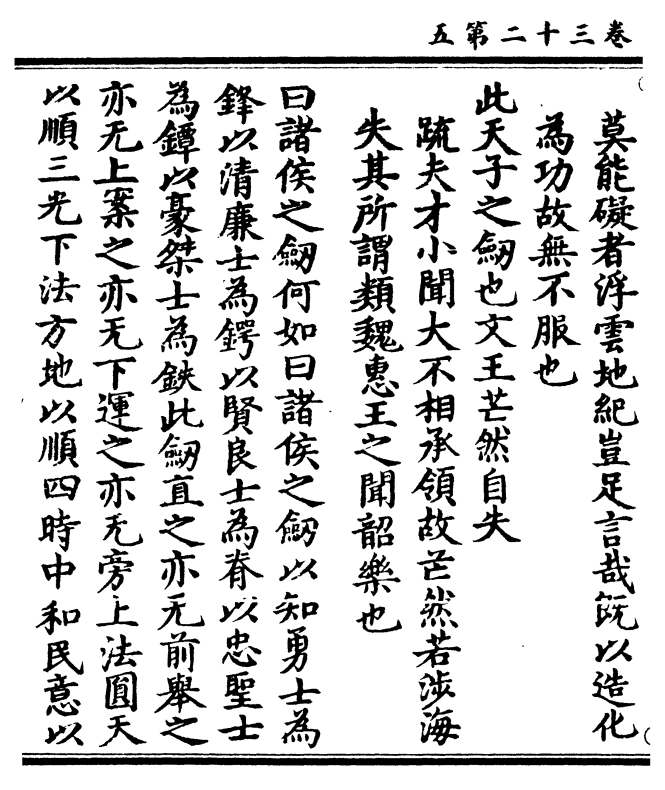 卷三十二第五
莫能礙者浮雲地紀豈足言哉既以造化
為功故無不服也
此天子之劒也文王芒然自失
䟽夫才小聞大不相承領故芒然若涉海
失其所謂類魏惠王之聞韶樂也
曰諸侯之劒何如曰諸侯之劒以知勇士為
鋒以清廉士為鍔以賢良士為脊以忠聖士
為鐔以豪桀士為鋏此劒直之亦无前舉之
亦无上案之亦无下運之亦无旁上法圓天
以順三光下法方地以順四時中和民意以